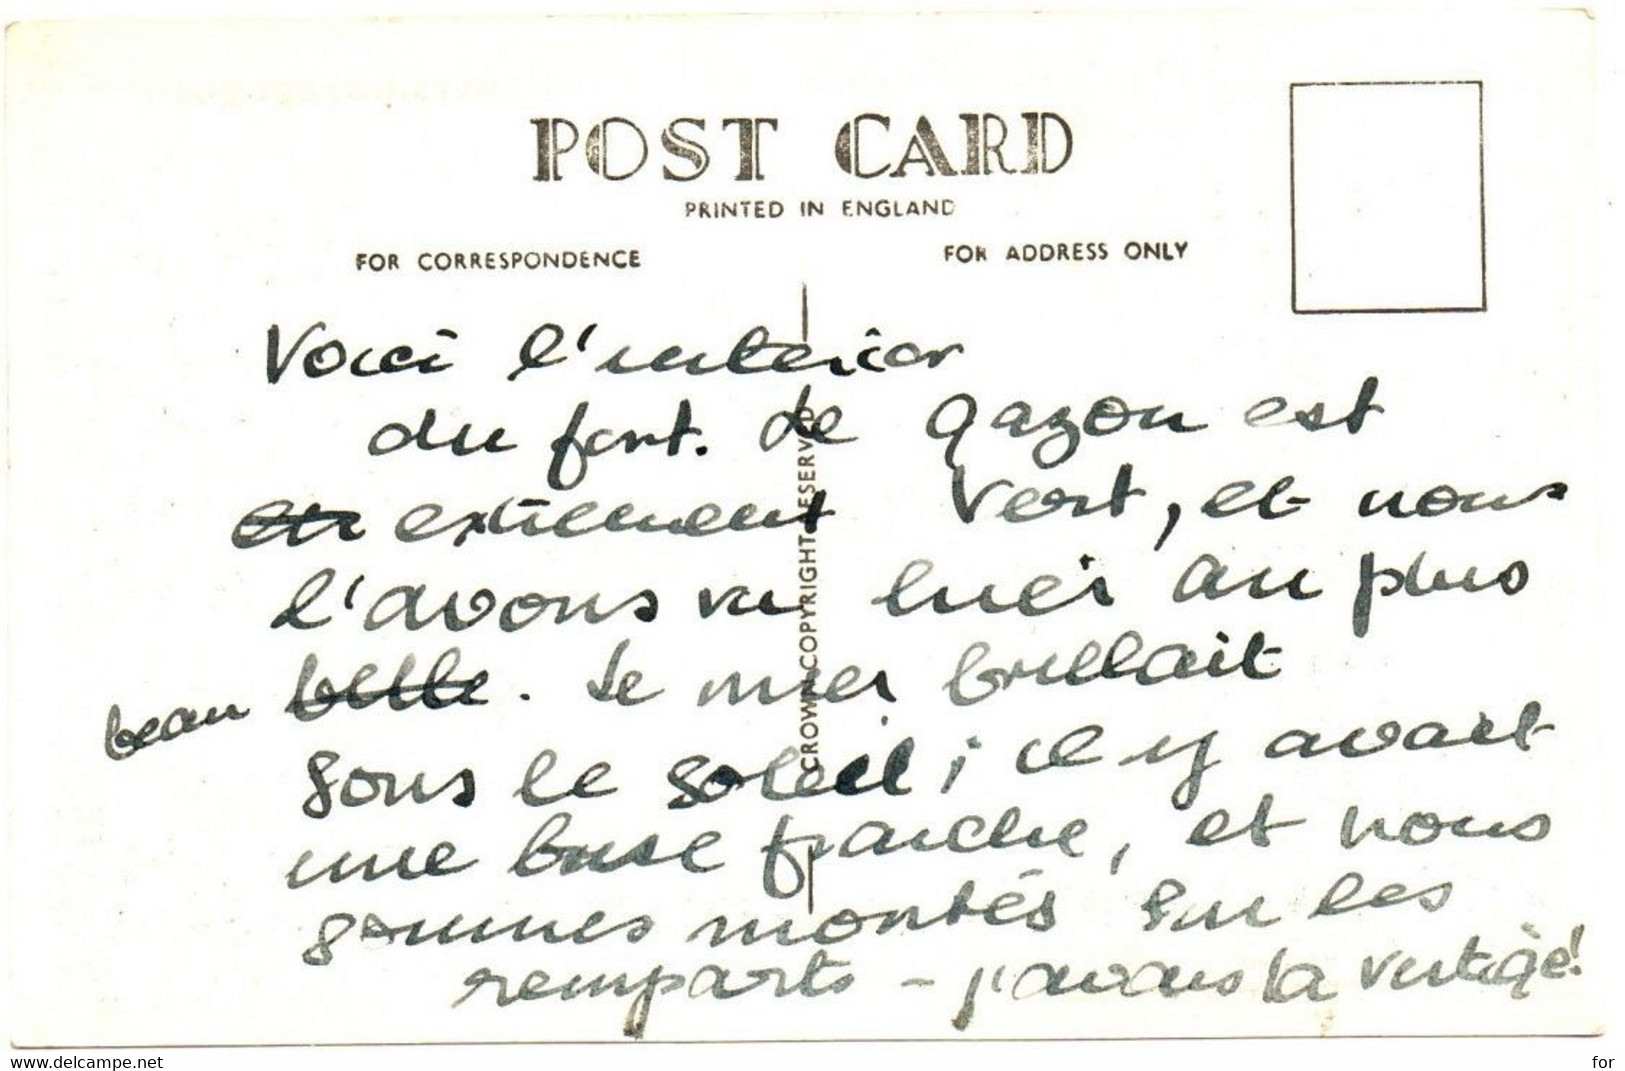 POST CARD
PRINTED IN ENGLAND
FOR CORRESPONDENCE
FOR ADDRESS ONLY
CROWN COPYRIGHT RESERVED
Voici l'interior
du fort. Le gazon est
extrêment vert, et nous
l'avons vu luer au plus
beau belle. Le mer brillait
sous le soleil; il y avait
une brise fraiche, et nous
sommes montés sur les
remparts - j'avais la vertige!
www.delcampe.net
for